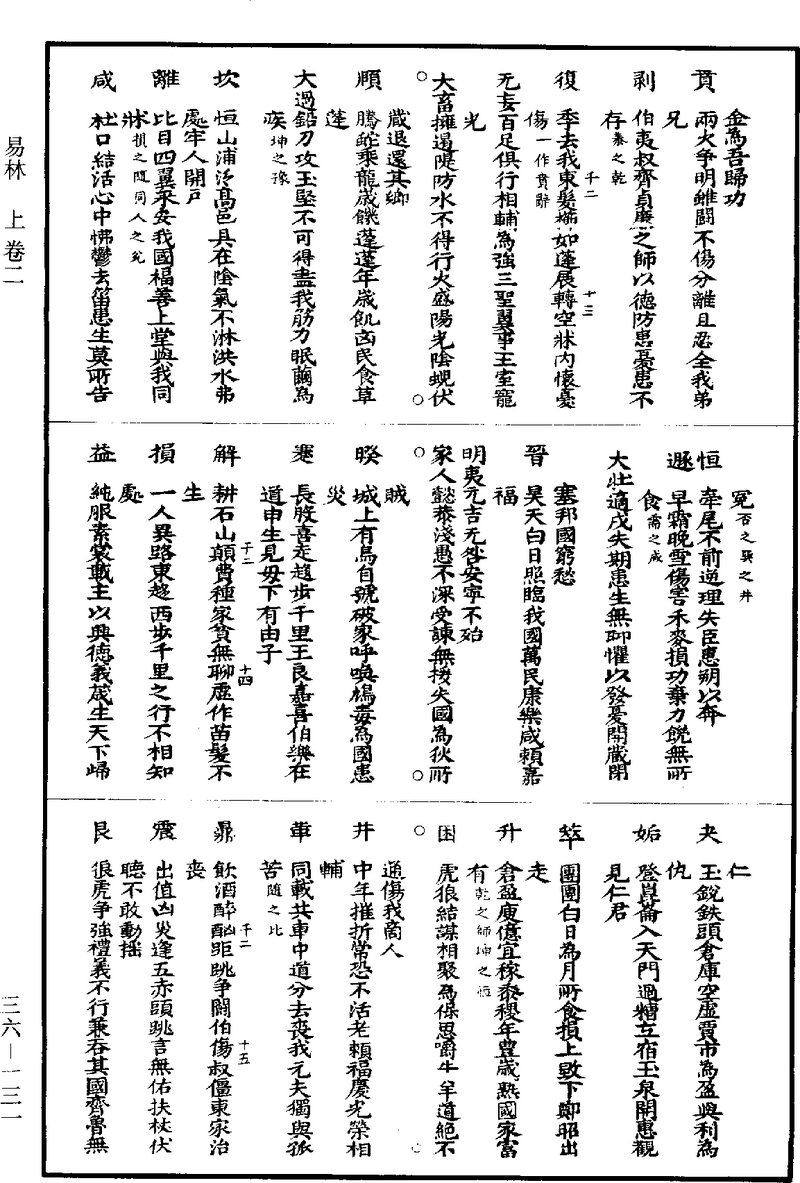 易林 上卷二
金為吾歸功
賁 兩火爭明雖鬪不傷分離且忍全我弟
兄
剥 伯夷叔齊貞廉之師以德防患憂患不
存泰之乾
復 季去我東髮櫛如蓬展轉空牀内懷憂
傷一作賁辭
无妄百足俱行相輔為強三聖翼事王室寵
光
大畜擁遏隄防水不得行火盛陽光陰蜺伏
藏退還其鄉
頤 騰蛇乘龍歲饑蓬蓬年歲飢凶民食草
蓬
大過鉛刀攻玉堅不可得盡我筋力眠繭為
疾坤之豫
坎 恒山浦泞髙邑具在陰氣不淋洪水弗
處牢人開戸
離 比目四翼來安我國福善上堂與我同
牀損之随同人之兊
咸 杜口結活心中怫鬱去𤲞患生莫所告
冤否之巽之井
恒 牽尾不前逆理失臣惠朔以奔
遯 早霜晚雪傷害禾麥損功棄力饑無所
食需之咸
大壮適戌失期患生無聊懼以發憂開藏閉
塞邦國窮愁
晉 昊天白日照臨我國萬民康樂咸賴嘉
福
明夷元吉无咎安寧不殆
家人懿恭淺愚不深受諫無援失國為狄所
賊
暌 城上有烏自號破家呼喚鴆毒為國患
災
蹇 長股喜走趍步千里王良嘉喜伯樂在
道申生見毋下有由子
解 耕石山顛費種家貧無聊虛作苗髮不
生
損 一人異路東趍西步千里之行不相知
處
益 純服素裳載主以興德義茂生天下歸
仁
夬 玉銳鉄頭倉庫空虛賈市為盈與利為
仇
姤 登崑崙入天門過糟丘宿玉泉開惠觀
見仁君
萃 團團白日為月所食損上毀下鄭昭出
走
升 倉盈庾億宜稼黍稷年豊歲熟國家富
有乾之師坤之恒
困 虎狼結謀相聚為保思嚼牛羊道絶不
通傷我商人
井 中年摧折常恐不活老賴福慶光榮相
輔
革 同載共車中道分去喪我元夫獨與孤
苦随之比
鼎 飲酒醉酗距跳爭鬪伯傷叔僵東家治
喪
震 出值凶災逢五赤頭跳言無佑扶杖伏
聽不敢動揺
艮 狠虎爭強禮義不行兼吞其國齊魯無
三六—一三一